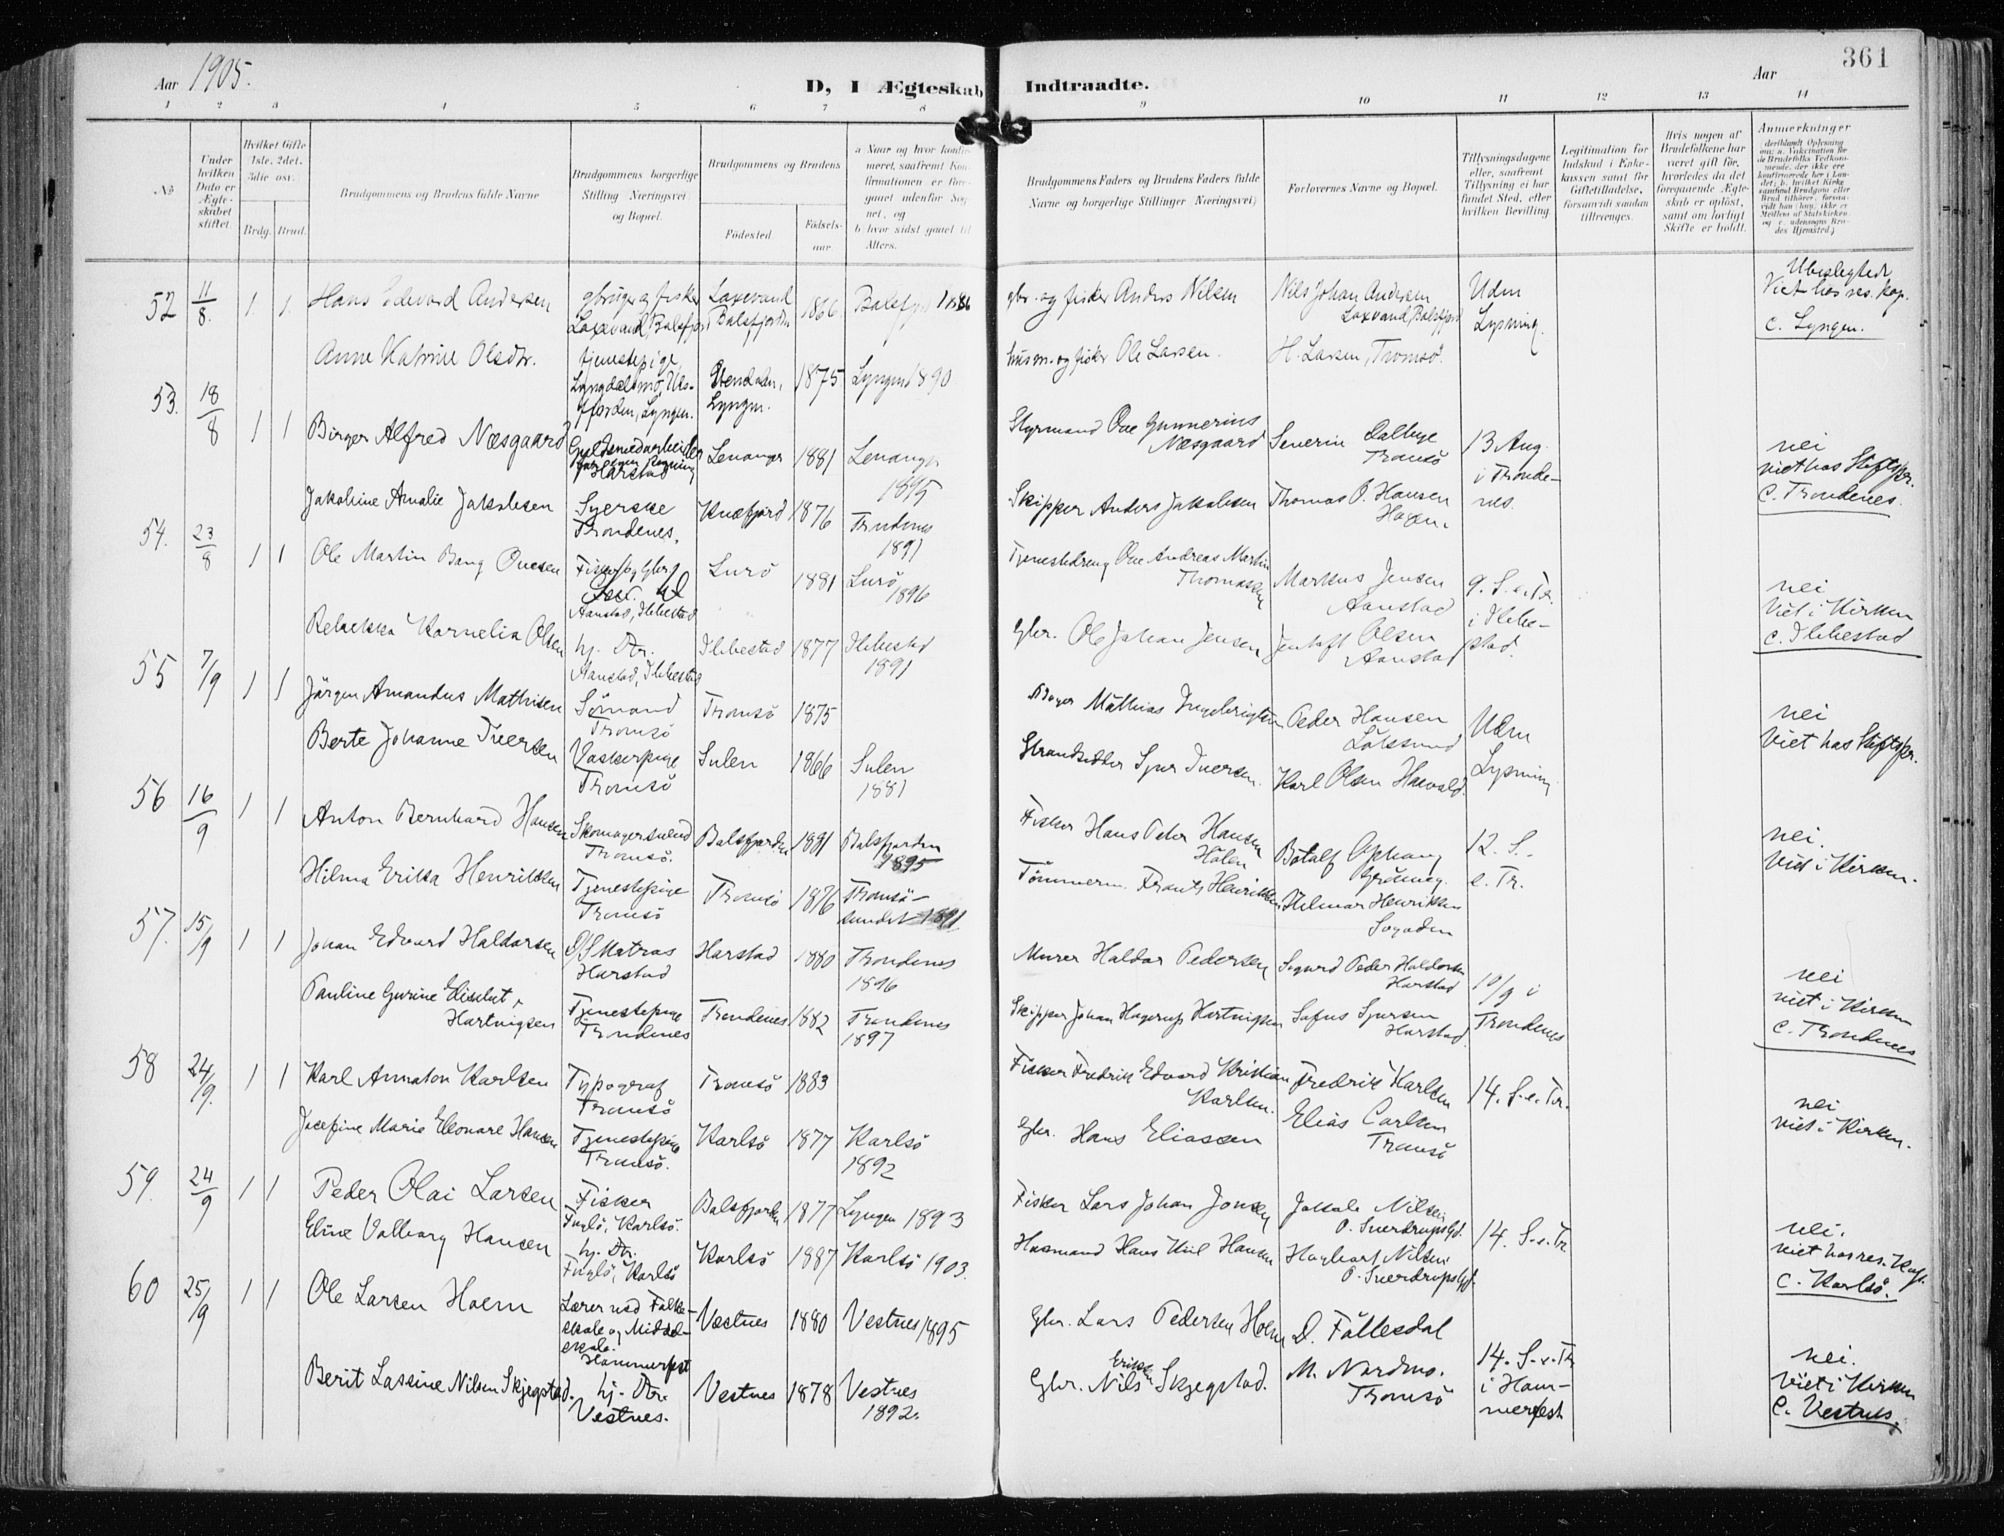 Aar 1905.
D, I Ægteskab Indtraadte.
Aar
361
1 2 3 4 5 6 7 8 9 10 11 12 13 14
No
Under hvilken Dato er Ægteskabet stiftet.
Hvilket Gifte 1ste. 2det. 3die osv.
Brdg. Brud.
Brudgommens og Brudens fulde Navne
Brudgommens borgerlige Stilling (Næringsvei) og Bopæl.
Brudgommens og Brudens
Fødested
Fødselsaar.
a Naar og hvor konfirmeret, saafremt Konfirmationen er foregaaet udenfor Sognet, og
b hvor sidst gaaet til Alters.
Brudgommens Faders og Brudens Faders fulde Navne og borgerlige Stillinger Næringsvei)
Forlovernes Navne og Bopæl.
Tillysningsdagene eller, saafremt Tillysning ei har fundet Sted, efter hvilken Bevilling.
Legitimation for Indskud i Enkekassen samt for Giftetilladelse, forsaavidt saadan tiltrænges.
Hvis nogen af Brudefolkene har været gift før, hvorledes da det foregaaende Ægteskab er opløst, samt om lovligt Skifte er holdt.
Anmerkninger
52 11/8. 1 1. Hans Edevard Andersen gbruger og fisker Laxevand, Balsfjord Laxevand Balsfjorden 1866 Balsfjord 1886 gbr. og fisker Anders Nilsen Nils Johan Andersen Laxvand, Balsfjord Uden Lysning. Ubeslegtede Viet hos res. kap. c. Lyngen.
Anne Katrine Olsdtr. tjenestepige, Lyngen. Lyngen. 1875 Lyngen 1890 husm. og fisker Ole Larsen. H. Larsen, Tromsø.
53. 18/8 1 1 Birger Alfred Næsgaard Guldsmedarbeider for egen Regning Harstad Lenanger 1881 Lenanger 1895 Styrmand Ove Gunnerius Næsgaard Severin Dalhuge Tromsö 13 Aug. i Trondenes. nei viet hos Stiftspr. C. Trondenes.
Jakobine Amalie Jakobsen Syerske Trondenes. Kvæfjord 1876 Trondenes 1891 Skipper Anders Jakobsen Thomas P. Hansen
54. 23/8 1 1 Ole Martin Bang Ovesen Aanstad, Ibbestad Lurö 1881 Lurö 1896 Tjenestedreng Ove Andreas Martin Thomassen Markus Jensen Aanstad 9. S. e. Tr. i Ibbestad. nei Viet i Kirken C. Ibbestad
Rebekka Kornelia Olsen hj. Dtr. Aanstad, Ibbestad Ibbestad 1877 Ibbestad 1891 Gbr. Ole Johan Jensen Jentoft Olsen Aanstad
55 7/9 1 1 Jörgen Amandus Mathisen Sömand Tromsö Tromsö 1875 Mathias Ingebrigtsen Peder Hansen Uden Lysning nei Viet hos Stiftspr.
Berte Johanne Iversen Vaskerpige Tromsö Sulen 1866 Sulen 1881 Strandsidder Iver Iversen. Karl Olsen
56 16/9 1 1 Anton Bernhard Hansen Skomagersvend Tromsö. Balsfjorden 1881 Balsfjorden 1895 Fisker Hans Peter Hansen Botolf 12. S. e. Tr. nei. Viet i Kirken.
Hilma Erika Henriksen Tjenestepige Tromsö Tromsö 1876 Tromsösundet 1891 Tömmerm. Frants Henriksen Hilmar Henriksen
57. 15/9 1 1 Johan Edvard Haldorsen D/S Matros Harstad Harstad 1880 Trondenes 1896 Murer Haldor Pedersen Sigurd Peder Haldorsen Harstad 10/9 i Trondenes nei viet i Kirken C. Trondenes
Pauline Gurine Elisabet Hartvigsen Tjenestepige Trondenes Trondenes 1882 Trondenes 1897 Skipper Johan Hagerup Hartvigsen Sofus Iversen Harstad.
58 24/9. 1 1 Karl Annaton Karlsen Typograf Tromsö Tromsö 1883 Fisker Fredrik Edvard Kristian Karlsen. Fredrik Karlsen 14. S. e. Tr. nei viet i Kirken.
Josefine Marie Eleonore Hansen Tjenestepige Tromsö. Karlsö 1877 Karlsö 1892 Gbr. Hans Eliassen Elias Carlsen Tromsö
59. 24/9 1 1 Peder Olai Larsen Fisker Fuglö, Karlsö. Balsfjorden 1877 Lyngen 1893 Fisker Lars Johan Jonsen Nilsen O. Sverdrupsgd. 14. S. e. Tr nei. viet hos res. Kap. C. Karlsö.
Eline Valborg Hansen hj. Dtr. Fuglö, Karlsö Karlsö 1887 Karlsö 1903. Husmand Hans Kiil Hansen Hagbart Nilsen O. Sverdrupsgd.
60 25/9 1 1 Ole Larsen Holm Lærer ved Folkeskole og Middelskole. Hammerfest Vestnes 1880 Vestnes 1895 Gbr. Lars Pedersen Holm D. Föllesdal 14. S. e. Tr i Hammerfest nei. viet i Kirken C. Vestnes.
Berit Lassine Nilsen Skjegstad. hj. Dtr. Vestnes. Vestnes 1878 Vestnes 1892. Gbr. Nils Eriksen Skjegstad. M. Nordmo. Tromsö